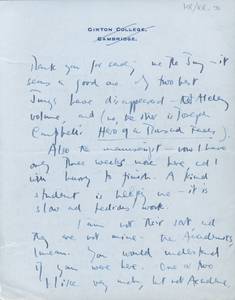 GIRTON COLLEGE,
CAMBRIDGE.
Thank you for sending me the Jung — it
seems a good one. My two best
Jungs have disappeared — the
volume, and (no, the other is Joseph
Campbell's Hero of a Thousand Faces).
Also the manuscript — now I have
only three weeks more here and I
with hurry to finish. A kind
student is helping me — it is
slow and tedious work.
I am not their sort and
they are not mine — the Academics,
I mean. You would understand
if you were here. One or two
I like very much, but not Academe.